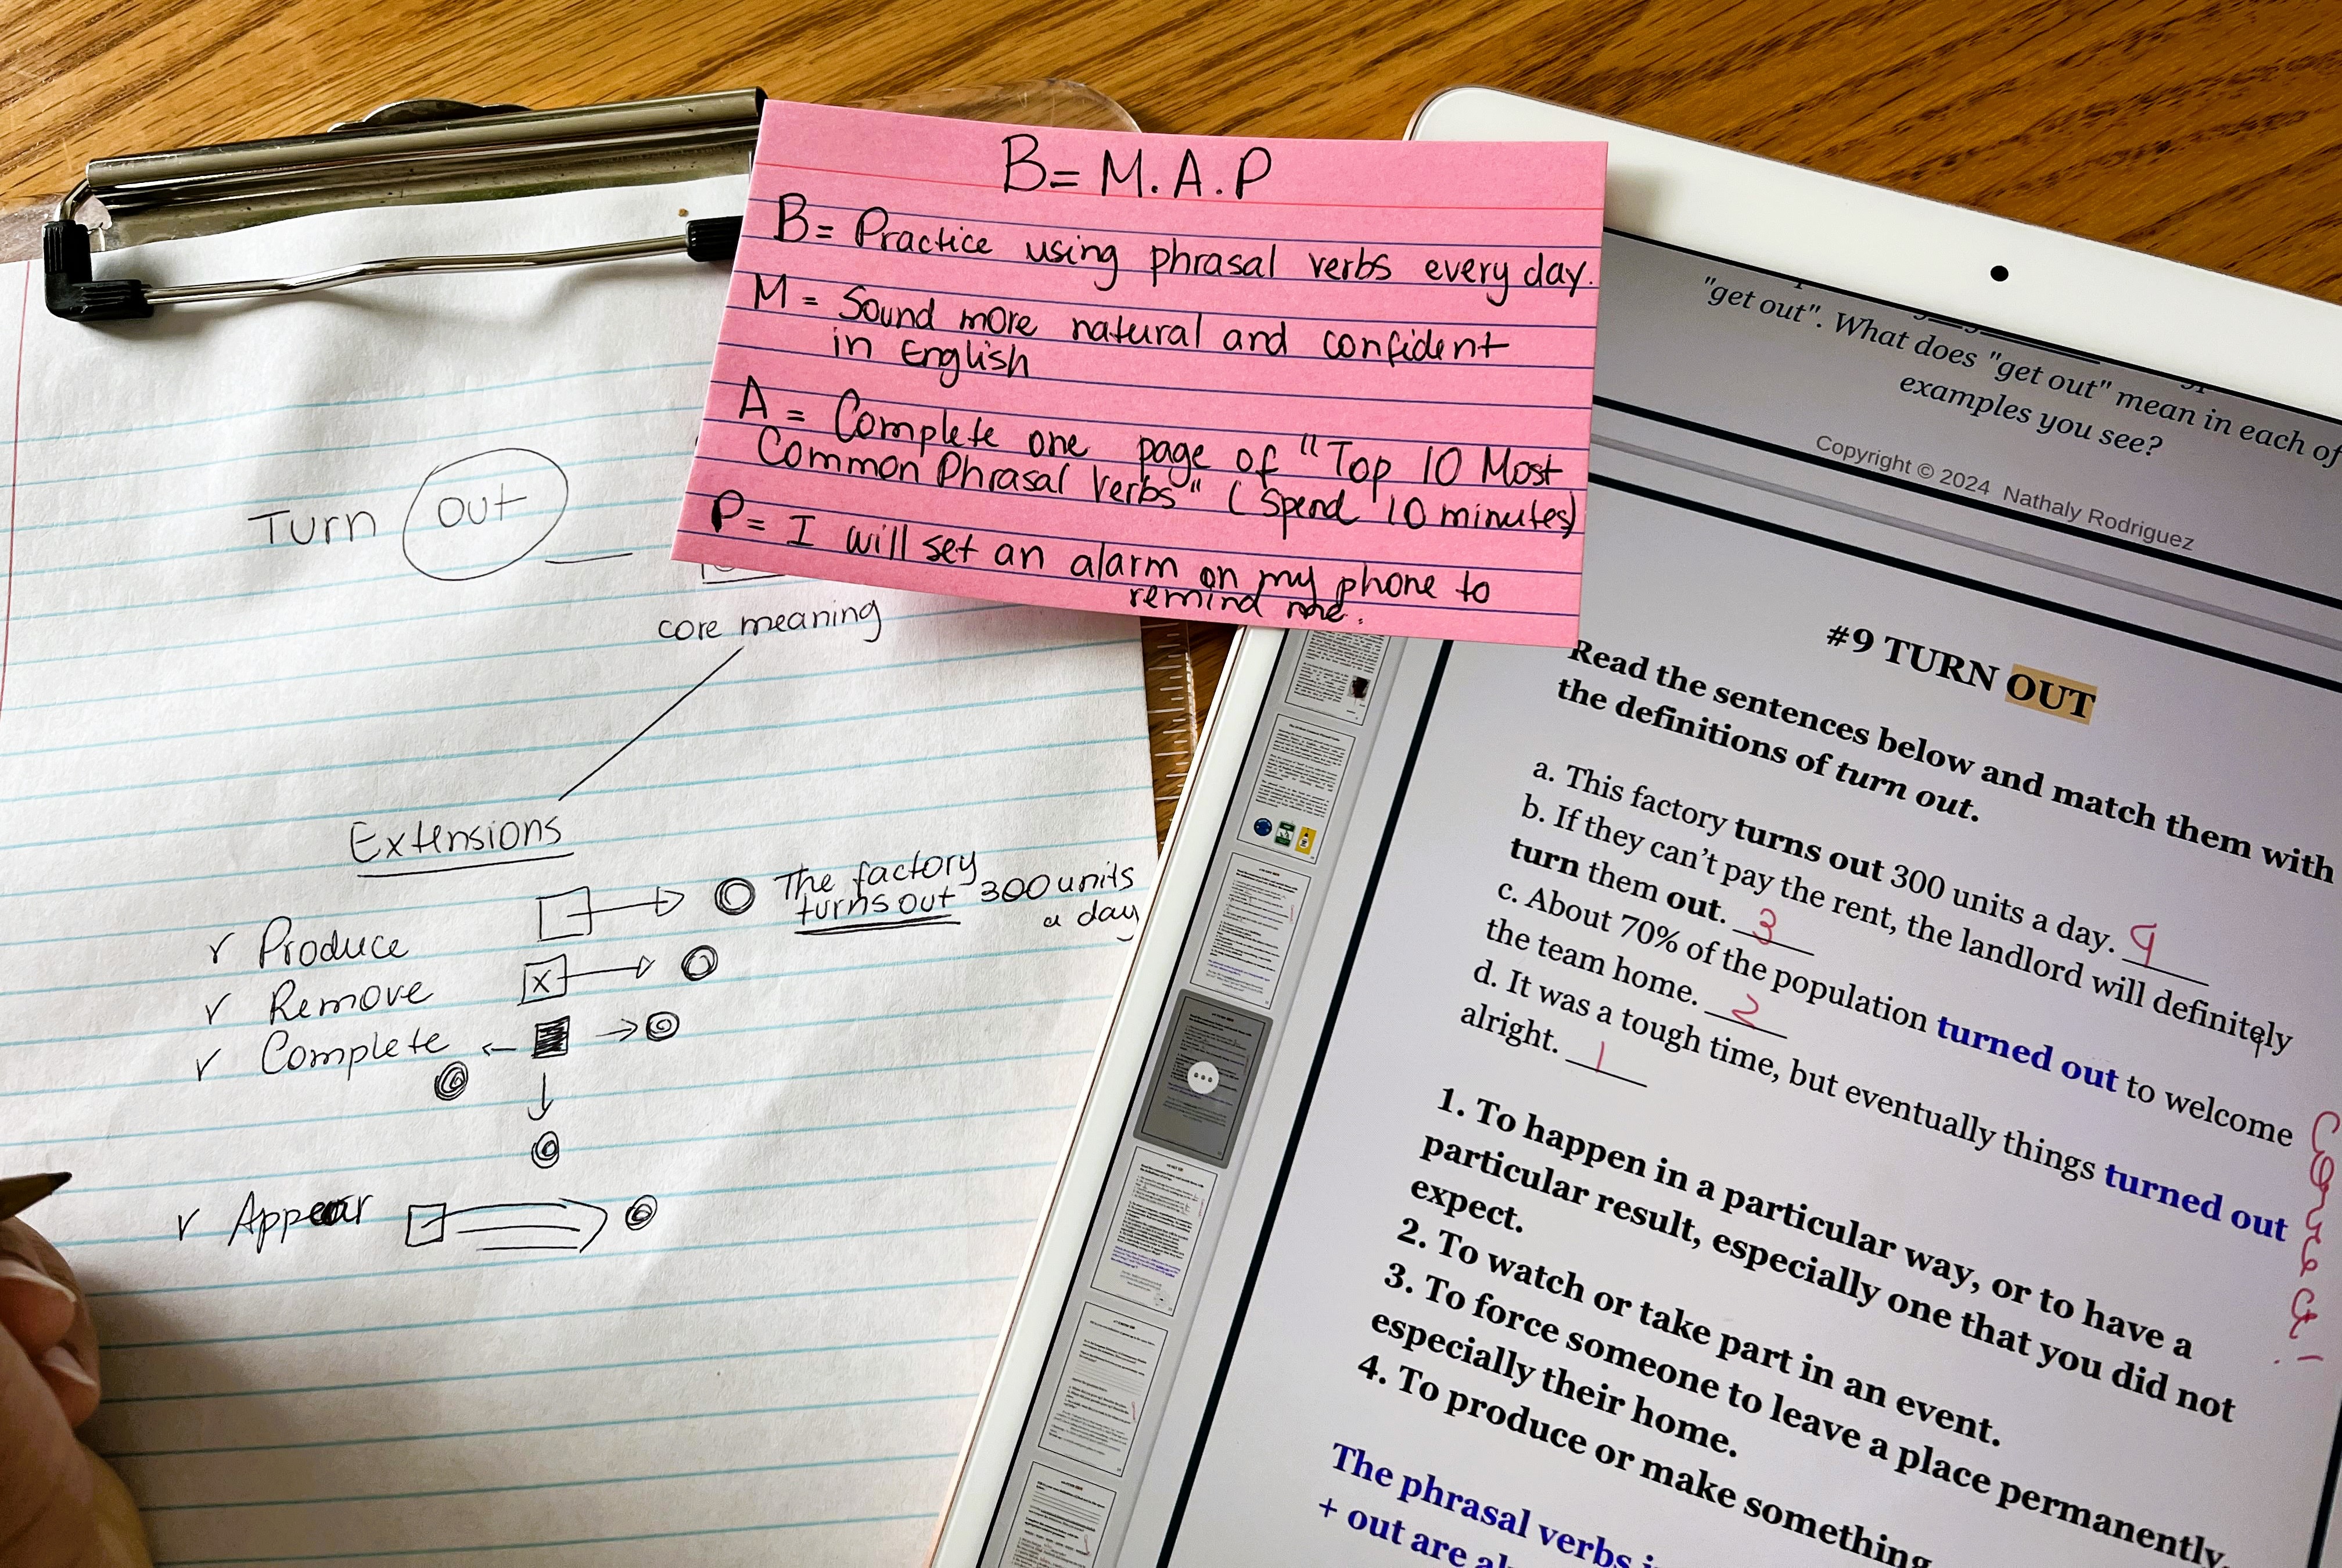 B= M.A.P
B= Practice using phrasal verbs every day.
M= Sound more natural and confident
in English
A= Complete one page of "Top 10 Most
Common Phrasal Verbs" (Spend 10 minutes)
P= I will set an alarm on my phone to
remind me.
Turn out
core meaning
Extensions
Produce
The factory
turns out 300 units
a day
Remove
x
Complete
Appear
"get out". What does "get out" mean in each of
examples you see?
Copyright © 2024 Nathaly Rodriguez
#9 TURN OUT
Read the sentences below and match them with
the definitions of turn out.
a. This factory turns out 300 units a day. 4
b. If they can't pay the rent, the landlord will definitely
turn them out. 3
c. About 70% of the population turned out to welcome
the team home. 2
d. It was a tough time, but eventually things turned out
alright. 1
Correct!
1. To happen in a particular way, or to have a
particular result, especially one that you did not
expect.
2. To watch or take part in an event.
3. To force someone to leave a place permanently,
especially their home.
4. To produce or make something
The phrasal verbs
+ out are